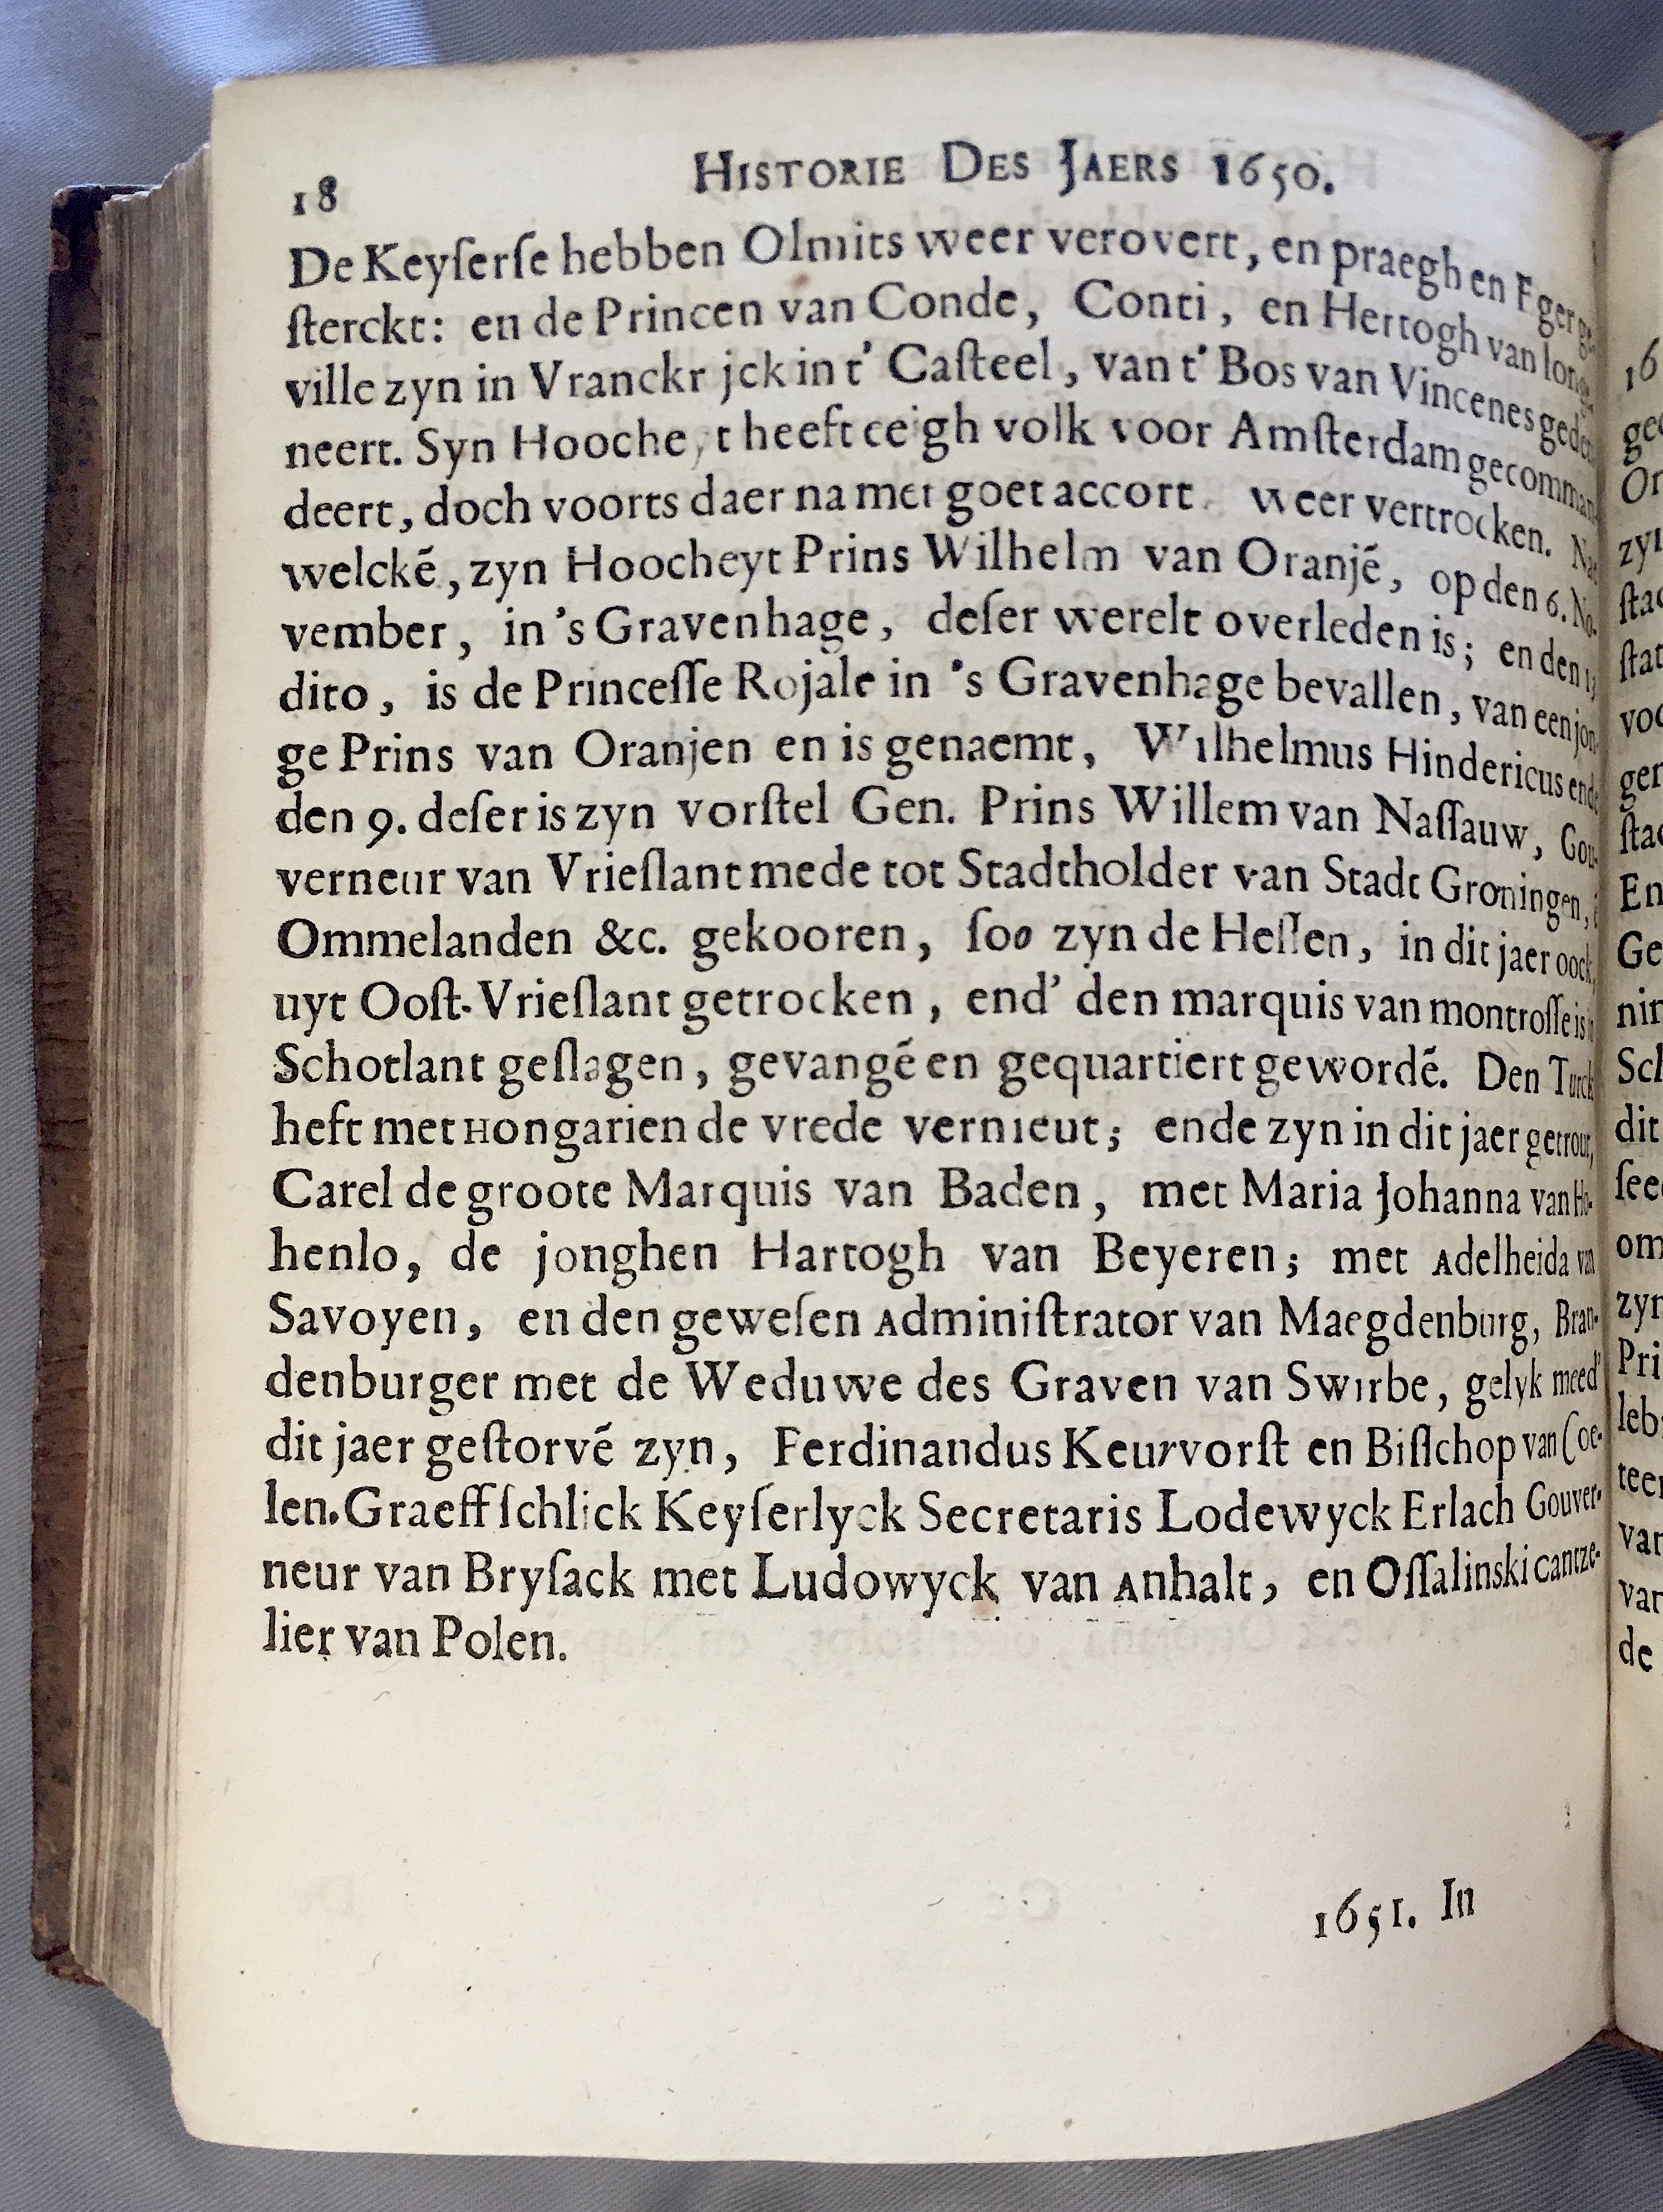 18 HISTORIE DES JAERS 1650.
De Keyſerſe hebben Olmits weer verovert, en praegh en Eger ge-
ſterckt: en de Princen van Conde, Conti, en Hertogh van long-
ville zyn in Vranckr jck in t' Caſteel, van t' Bos van Vincenes gede-
neert. Syn Hooche,t heeft ce gh volk voor Amſterdam gecomman-
deert, doch voorts daer na met goet accort. weer vertrocken. Nae
welckẽ, zyn Hoocheyt Prins Wilhelm van Oranjẽ, op den 6. No-
vember, in 's Gravenhage, deſer werelt overleden is; en den
dito, is de Princeſſe Rojale in 's Gravenhage bevallen, van een jon-
ge Prins van Oranjen en is genaemt, Wilhelmus Hindericus ende
den 9. deſer is zyn vorſtel Gen. Prins Willem van Naſſauw, Gou-
verneur van Vrieſlant mede tot Stadtholder van Stadt Groningen,
Ommelanden &c. gekooren, ſoo zyn de Heſſen, in dit jaer oock
uyt Ooſt-Vrieſlant getrocken, end' den marquis van montroſſe is
Schotlant geſlagen, gevangẽ en gequartiert gewordẽ. Den Turck
heft met Hongarien de vrede vernieut; ende zyn in dit jaer getrout,
Carel de groote Marquis van Baden, met Maria Johanna van Ho-
henlo, de jonghen Hartogh van Beyeren; met Adelheida van
Savoyen, en den geweſen Adminiſtrator van Maegdenburg, Bran-
denburger met de Weduwe des Graven van Swirbe, gelyk meed'
dit jaer geſtorvẽ zyn, Ferdinandus Keurvorſt en Biſſchop van Coe-
len. Graeff ſchlick Keyſerlyck Secretaris Lodewyck Erlach Gouver-
neur van Bryſack met Ludowyck van Anhalt, en Oſſalinski cantze-
lier van Polen.
1651. In
16
gec
Or
zyn
ſtac
ſtat
voo
ger
ſtac
En
Ge
nin
Sch
dit
ſee
om
zyn
Pri
leb
teer
van
van
de